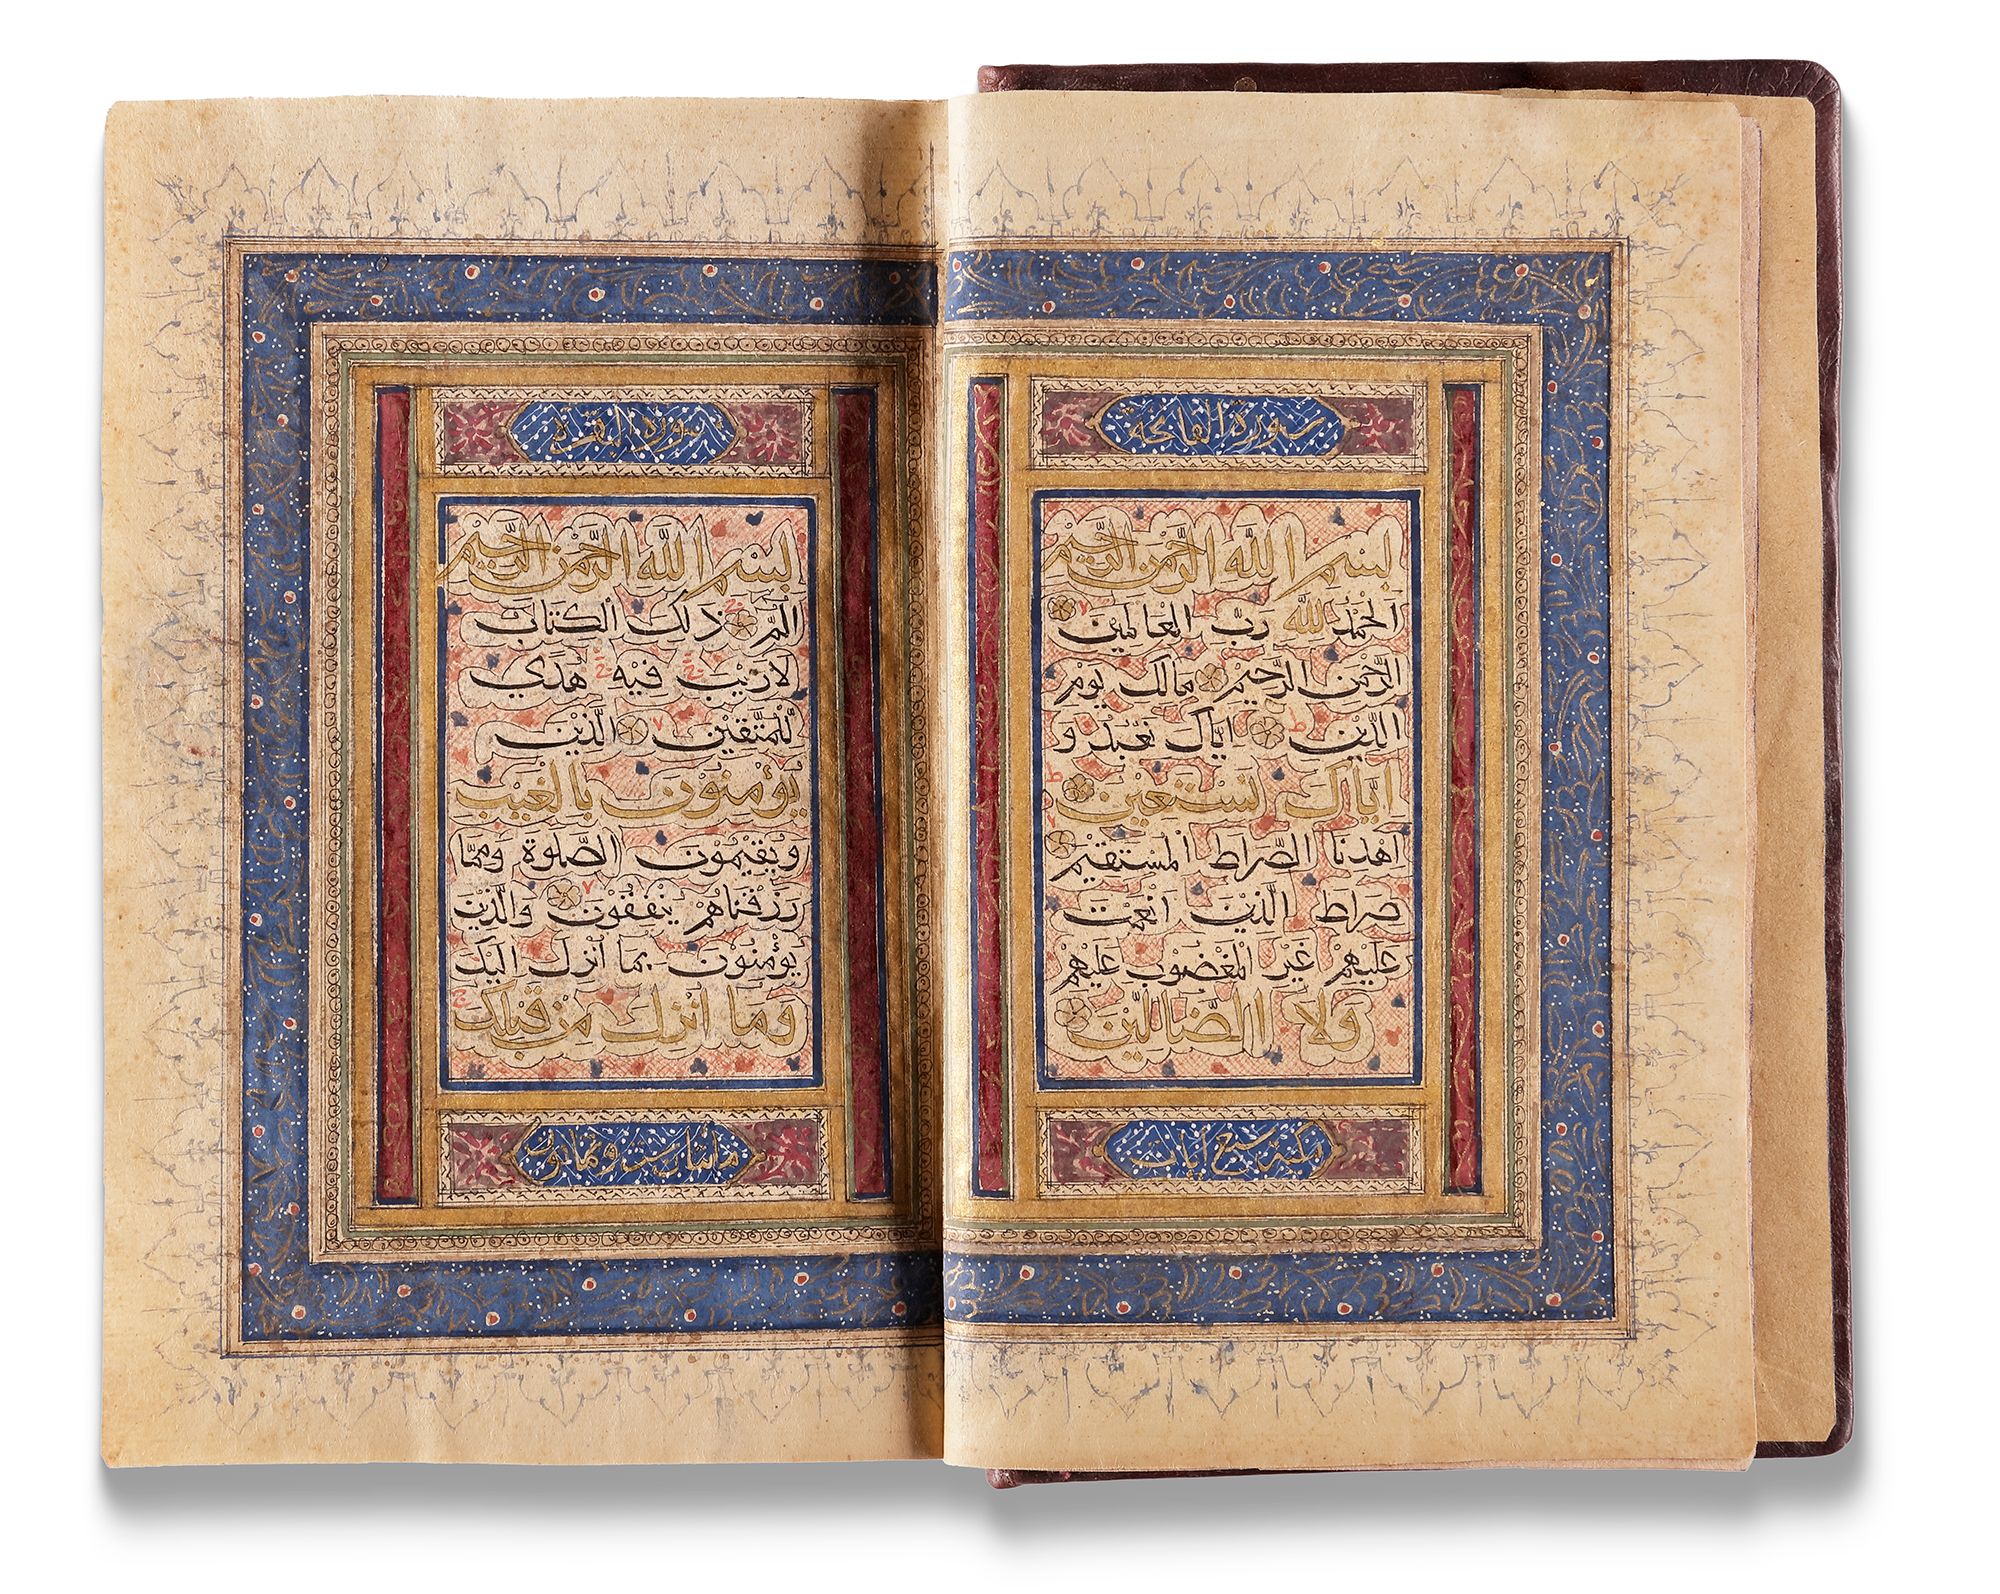 سورة الفاتحة
بسم الله الرحمن الرحيم
الحمد لله رب العالمين
الرحمن الرحيم مالك يوم
الدين اياك نعبد و
اياك نستعين
اهدنا الصراط المستقيم
صراط الذين انعمت
عليهم غير المغضوب عليهم
ولا الضالين
مكية سبع ايات
سورة البقرة
بسم الله الرحمن الرحيم
الم ذلك الكتاب
لا ريب فيه هدى
للمتقين الذين
يؤمنون بالغيب
ويقيمون الصلوة ومما
رزقناهم ينفقون والذين
يؤمنون بما انزل اليك
وما انزل من قبلك
مأتان وست وثمانون